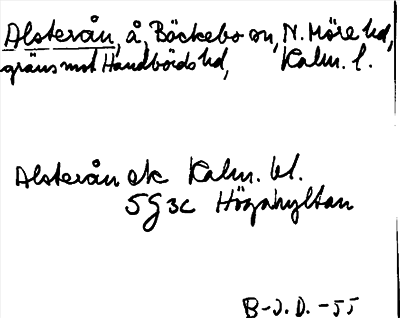 Alsterån, å, Böckebo sn, N. Möre hd,
gräns mot Handbörds hd, Kalm. l.
Alsterån ek Kalm. bl.
5G 3c Högahyltan
B-J. D. -55